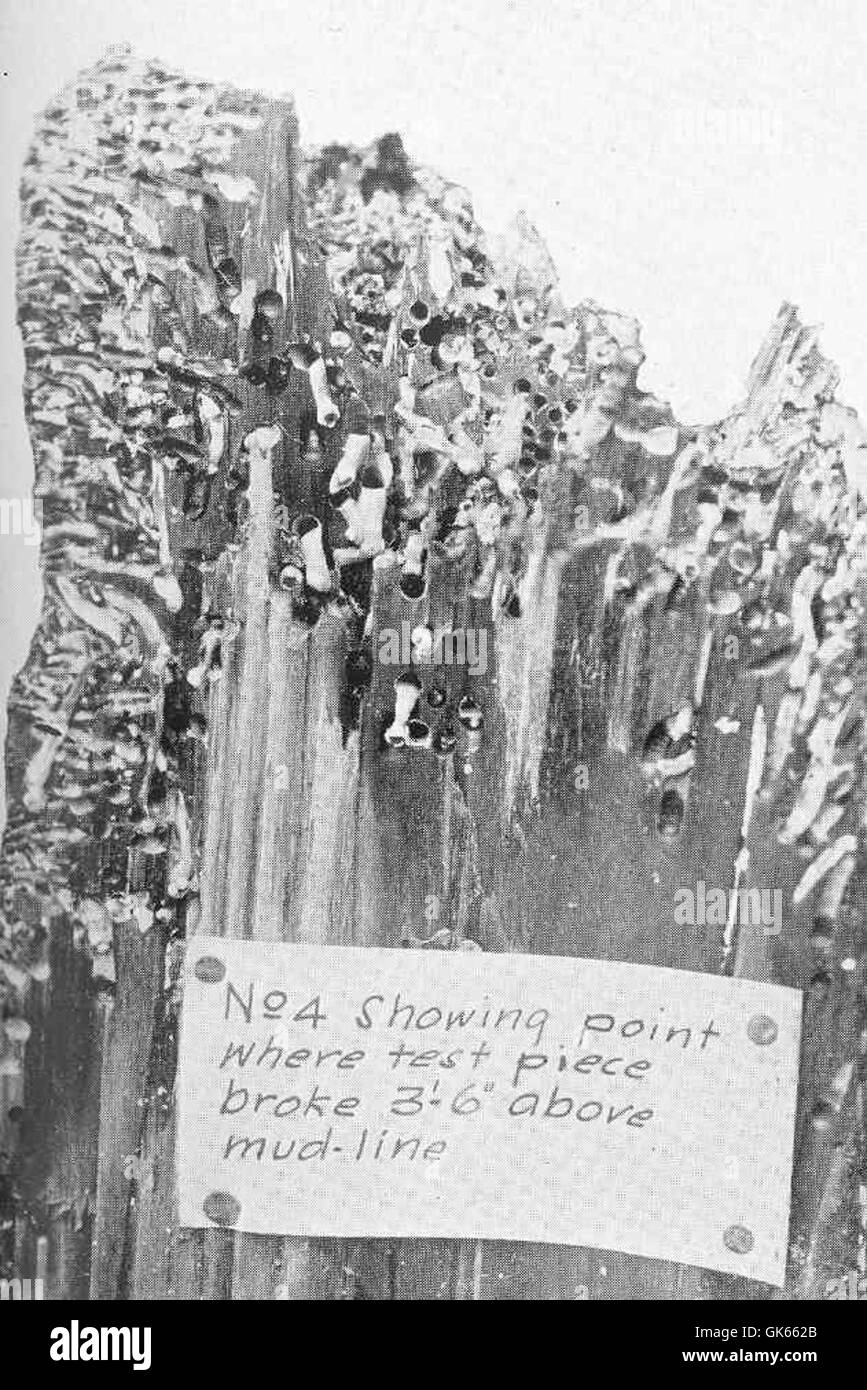 No 4 Showing point
where test piece
broke 3'-6" above
mud-line
alamy
alamy
Image ID: GK662B
www.alamy.com